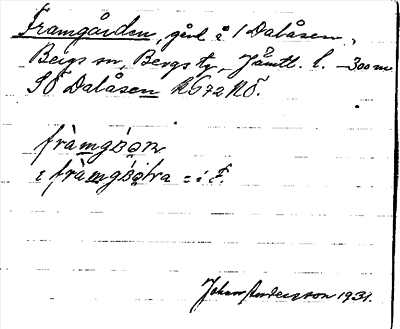 Framgården, gård i 1 Dalåsen,
Bergs sn, Bergs tg, Jämtl. l. 300 m
SÖ Dalåsen Rb72NÖ.
fràmgøɷn
i fràmgøɷtra = i F.
Johan Andersson 1931.